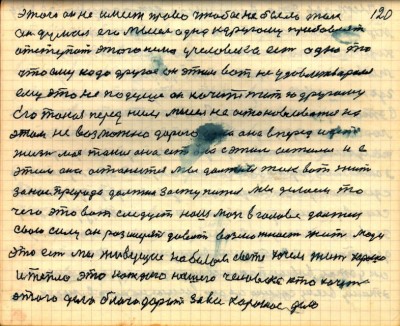 120
этого он не имеет право чтобы не было этак
он думал его мысля одна к другому прибовляет
отступат этого нима у человека ест одно это
что ему надо другоя он этим вот не удовлитварон
ему это не подуше он хочит жит по другому
Его такая перед ним мысля не останавливатся на
этом не возможно дорога она вперод идет
жизн моя такая она ест она с этим осталас и с
этим она останится мы должны так вот жит
за нас природа должна заступится мы делаем то
чего это вот следует наш мозг в голове должен
свою силу он розширят довать возможност жит люди
это ест мы живущие на белом свете хочем жит хорошо
и тепло это каждого нашего человека кто хочит
этого дела благодарит за ви хорошое дело